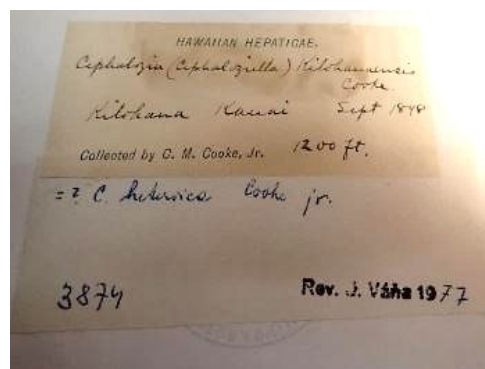 HAWAIIAN HEPATICAE.
Cephalozia (Cephaloziella) Kilohanaensis
Cooke.
Kilohana Kauai Sept 1898
Collected by C. M. Cooke, Jr. 1200 ft.
= ? C. heteroica Cooke jr.
3874
Rev. J. Váňa 1977